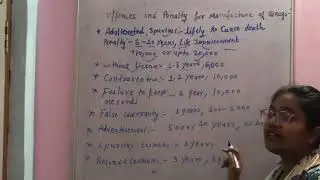 Offences and Penalty for Manufacture of Drugs:-
* Adulterated, Spurious:- likely to cause death
Penalty:- 5-10 years, Life Imprisonment
10,000 or upto 20,000
* without license:- 1-3 years, 5,000
* Contravention:- 1-2 year, 10,000
* Failure to keep - 1 year, 10,000
records
* False warranty:- years, 500-5000
* Advertisement:- 5000, years, or
* Spurious cosmetic:- 3 years,
* 3 years,